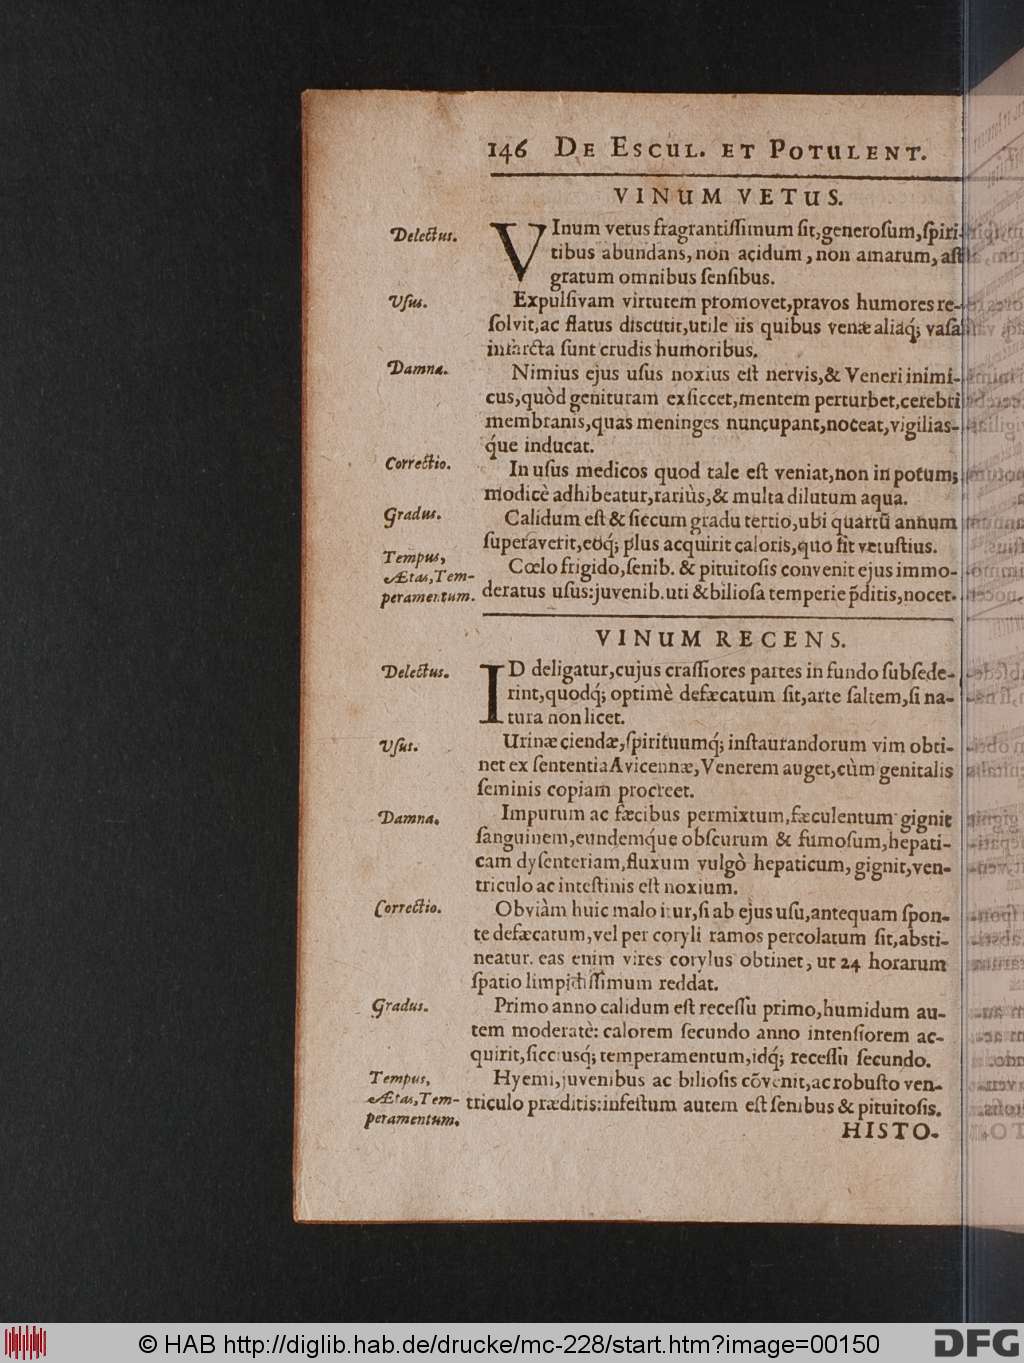 146 DE ESCUL. ET POTULENT.
VINUM VETUS.
Delectus.
VInum vetus fragrantiſſimum ſit,generoſum,ſpiri-
tibus abundans, non acidum, non amarum, aſt
gratum omnibus ſenſibus.
Uſus.
Expulſivam virtutem promovet,pravos humores re-
ſolvit,ac flatus diſcutit,utile iis quibus venæ aliaq́; vaſa
infarcta ſunt crudis humoribus.
Damna.
Nimius ejus uſus noxius eſt nervis,& Veneri inimi-
cus,quòd genituram exſiccet,mentem perturbet,cerebri
membranis,quas meninges nuncupant,noceat,vigilias-
q́ue inducat.
Correctio.
In uſus medicos quod tale eſt veniat,non in potum;
modicè adhibeatur,rariùs,& multa dilutum aqua.
Gradus.
Calidum eſt & ſiccum gradu tertio,ubi quartū annum
ſuperaverit,eoq́; plus acquirit caloris,quo ſit vetuſtius.
Tempus,
Ætas,Tem-
peramentum.
Cœlo frigido,ſenib. & pituitoſis convenit ejus immo-
deratus uſus:juvenib.uti & bilioſa temperie p̄ditis,nocet.
VINUM RECENS.
Delectus.
ID deligatur,cujus craſſiores partes in fundo ſubſede-
rint,quodq́; optimè defæcatum ſit,arte ſaltem,ſi na-
tura non licet.
Uſus.
Urinæ ciendæ,ſpirituumq́; inſtaurandorum vim obti-
net ex ſententia Avicennæ,Venerem auget,cùm genitalis
ſeminis copiam procreet.
Damna.
Impurum ac fæcibus permixtum,fæculentum gignit
ſanguinem,eundemq́ue obſcurum & fumoſum,hepati-
cam dyſenteriam,fluxum vulgò hepaticum, gignit,ven-
triculo ac inteſtinis eſt noxium.
Correctio.
Obviàm huic malo itur,ſi ab ejus uſu,antequam ſpon-
te defæcatum,vel per coryli ramos percolatum ſit,abſti-
neatur. eas enim vires corylus obtinet, ut 24 horarum
ſpatio limpidiſſimum reddat.
Gradus.
Primo anno calidum eſt receſſu primo,humidum au-
tem moderatè: calorem ſecundo anno intenſiorem ac-
quirit,ſicciusq́; temperamentum,idq́; receſſu ſecundo.
Tempus,
Ætas,Tem-
peramentum.
Hyemi,juvenibus ac bilioſis cōvenit,ac robuſto ven-
triculo præditis:infeſtum autem eſt ſenibus & pituitoſis.
HISTO-
© HAB http://diglib.hab.de/drucke/mc-228/start.htm?image=00150
DFG